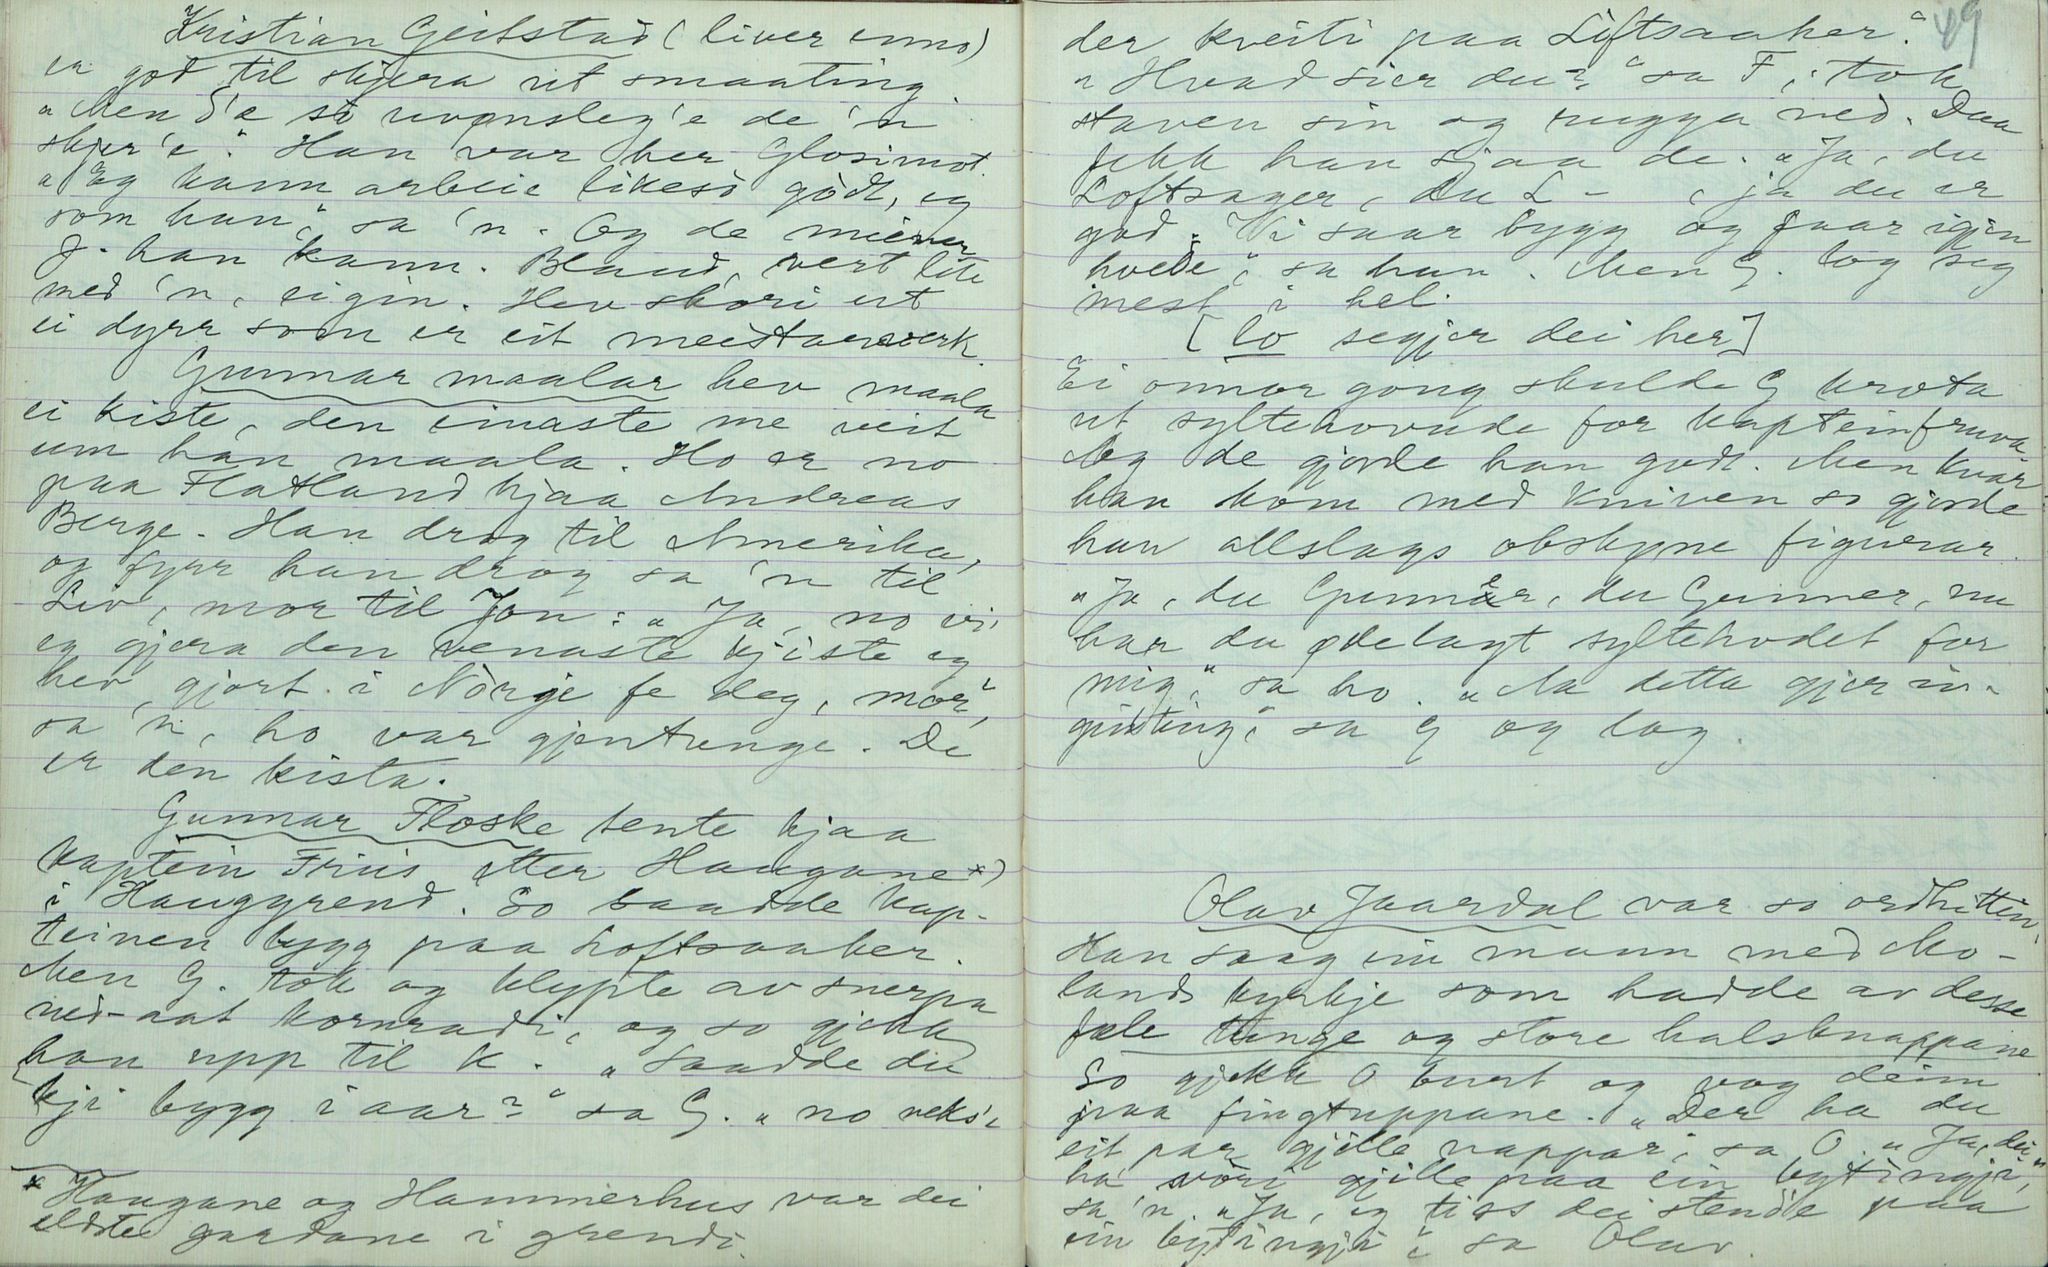 Kristian Geitstad (liver enno)
er god til skjera ut smaating.
„Men d'æ så uvonsleg'e de 'n
skjer'e." Han var her Glosimot.
„Eg kann arbeie likeså godt, eg
som han," sa 'n. Og de meiner
J. han kann. Bland, vert lite
med 'n, eigin. Hev skori ut
ei dyrr som er eit meistarverk.
Gunnar maalar hev maala
ei kiste, den einaste me veit
um han maala. Ho er no
paa Flatland hjaa Andreas
Berge. Han drog til Amerika,
og fyrr han drog sa 'n til
Liv, mor til Jon: „Ja, no vi
eg gjera den venaste kjiste eg
hev gjort i Nòrge fe deg, mor",
sa 'n, ho var gjentunge. De
er den kista.
Gunnar Floske tente hjaa
kaptein Friis etter Haugane*)
i Hauggrend. So saadde kap-
teinen bygg paa Loftsaaker.
Men G. tok og klypte av snerpa
ned-aat kornradi, og so gjekk
han upp til K. „Saadde du
kji bygg i aar?" sa G. „no veks'e
* Haugane og Hammerhus var dei
eldste gardane i grendi.
49
der kveiti paa Liftsaaker."
„Hvad sier du?" sa F, tok
staven sin og rugga ned. Daa
fekk han sjaa de. „Ja, du
Loftsager, du L- , ja du er
god. Vi saar bygg og faar igjen
hvede", sa han. Men G. log seg
mest i hel.
[lo segjer dei her]
Ei onnor gong skulde G krota
ut syltehovude for kapteinfruva.
Og de gjorde han godt. Men kvar
han kom med kniven so gjorde
han allslags obskyne figurar.
„Ja, du Gunner, du Gunner, nu
har du ødelagt syltehodet for
mig," sa ho. „Aa detta gjer in-
genting," sa G og log.
Olav Jaardal var so ordhittin.
Han saag ein mann med Mo-
lands kyrkje som hadde av desse
fæle tunge og store halsknappane
So gjekk O burt og vog deim
paa fingtuppane. „Der ha du
eit par gjille nappar", sa O. „Ja, dei
ha vòri gjille paa ein bytingji",
sa 'n. „Ja, eg tiss dei stende paa
ein bytingji", sa Olav.